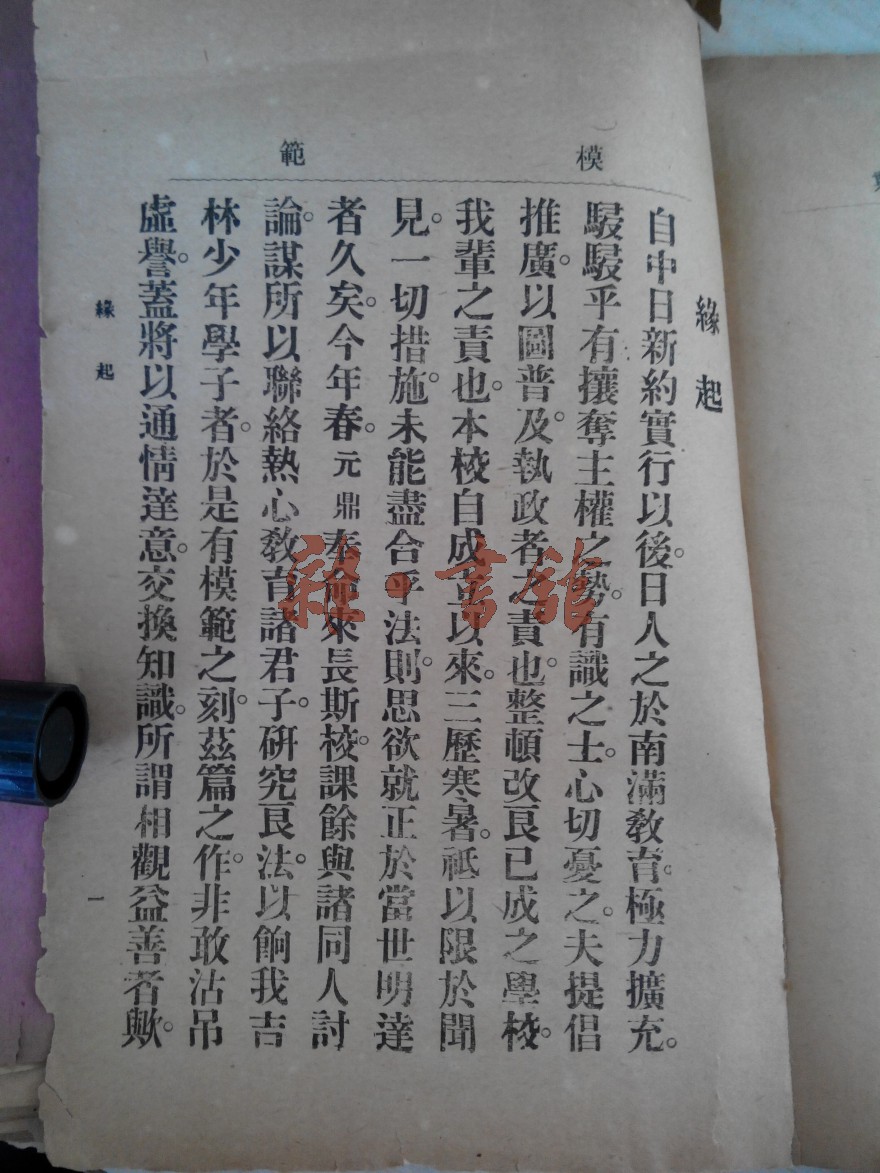 模範
緣起
自中日新約實行以後。日人之於南滿教育。極力擴充。
駸駸乎有攘奪主權之勢。有識之士。心切憂之。夫提倡
推廣。以圖普及。執政者之責也。整頓改良已成之學校。
我輩之責也。本校自成立以來。三歷寒暑。祗以限於聞
見。一切措施。未能盡合乎法則。思欲就正於當世明達
者久矣。今年春。元鼎奉命來長斯校。課餘與諸同人討
論。謀所以聯絡熱心教育諸君子。研究良法。以餉我吉
林少年學子者。於是有模範之刻。茲篇之作。非敢沽吊
虛譽。蓋將以通情達意。交換知識。所謂相觀益善者歟。
緣起
一
雜·書館